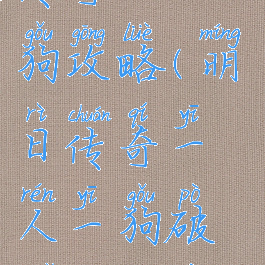 gǒu gōng lüè míng
狗攻略(明
rì chuán qí yī
日传奇一
rén yī gǒu pò
人一狗破